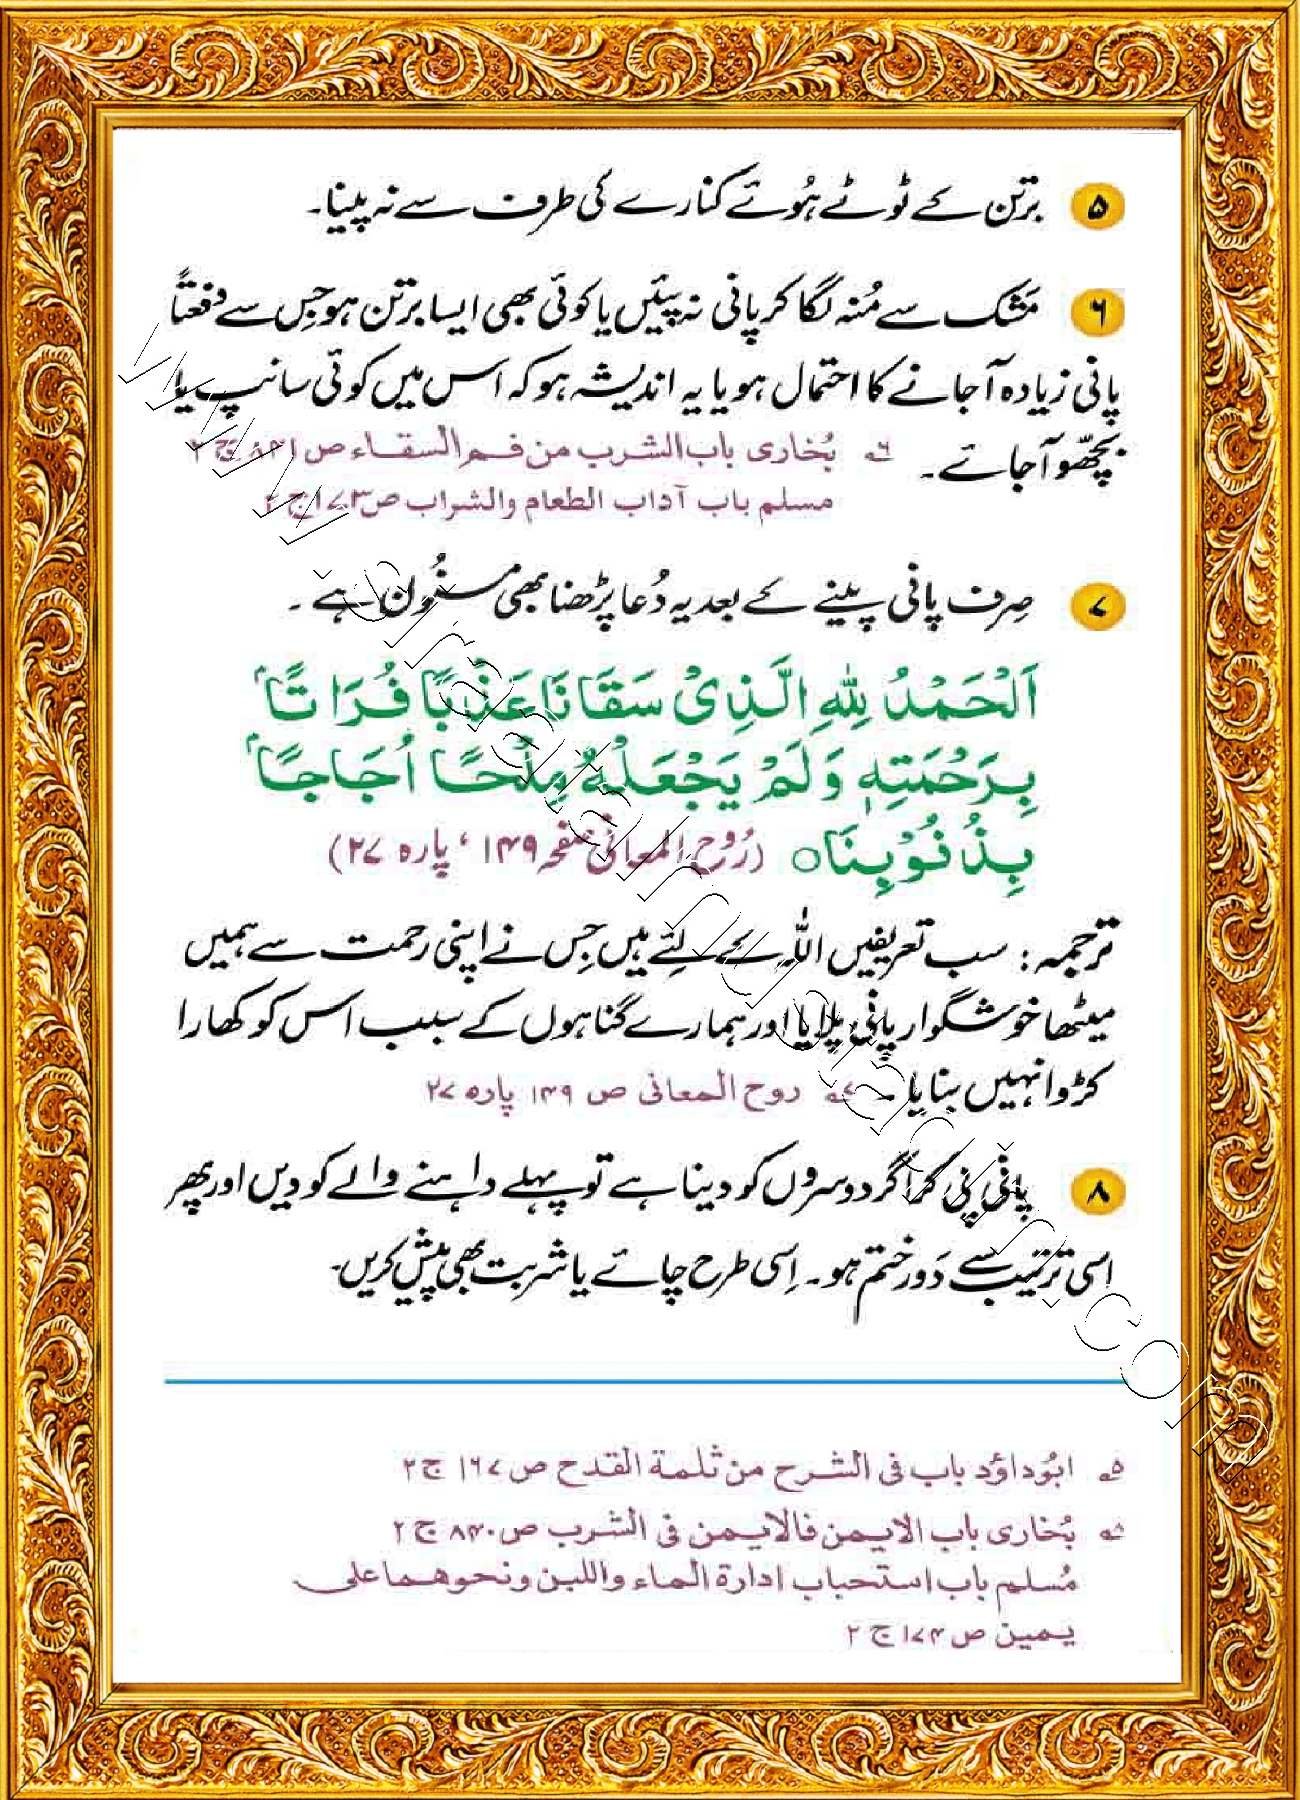 ۵ برتن کے ٹوٹے ہُوئے کنارے کی طرف سے نہ پینا۔
۶ مَشک سے مُنہ لگا کر پانی نہ پیئیں یا کوئی بھی ایسا برتن ہو جِس سے دفعتاً
پانی زیادہ آجانے کا احتمال ہو یا یہ اندیشہ ہو کہ اس میں کوئی سانپ یا
بچھّو آجائے۔ ۶ے بُخاری باب الشرب من فم السقاء ص ۸۴۱ ج ۲
مسلم باب آداب الطعام والشراب ص ۱۷۳ ج ۲
۷ صِرف پانی پینے کے بعد یہ دُعا پڑھنا بھی مسنُون ہے۔
اَلْحَمْدُ لِلّٰهِ الَّذِیْ سَقَانَا عَذْبًا فُرَاتًا
بِرَحْمَتِهٖ وَلَمْ یَجْعَلْهُ مِلْحًا اُجَاجًا
بِذُنُوْبِنَا○ (رُوح المعانی صفحہ ۱۴۹، پارہ ۲۷)
ترجمہ: سب تعریفیں اللہ کے لئے ہیں جِس نے اپنی رحمت سے ہمیں
میٹھا خوشگوار پانی پلایا اور ہمارے گناہوں کے سبب اس کو کھارا
کڑوا نہیں بنایا۔ ۷ے روح المعانی ص ۱۴۹ پارہ ۲۷
۸ پانی پی کر اگر دوسروں کو دینا ہے تو پہلے داہنے والے کو دیں اور پھر
اسی ترتیب سے دَور ختم ہو۔ اِسی طرح چائے یا شربت بھی پیش کریں۔
۵ے ابُوداؤد باب فی الشرح من ثلمة القدح ص ۱۶۷ ج ۲
۸ے بُخاری باب الایمن فالایمن فی الشرب ص ۸۴۰ ج ۲
مُسلم باب استحباب ادارة الماء واللبن ونحوهما علی
یمین ص ۱۷۴ ج ۲
www.siraatalmustaqim.com